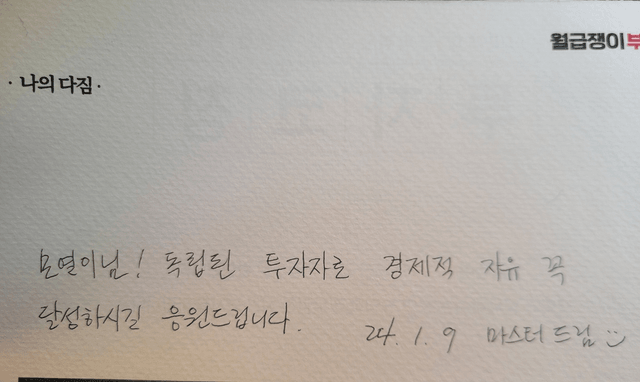 월급쟁이부
· 나의 다짐 ·
모열이님! 독립된 투자자로 경제적 자유 꼭
달성하시길 응원드립니다.
24. 1. 9 마스터 드림